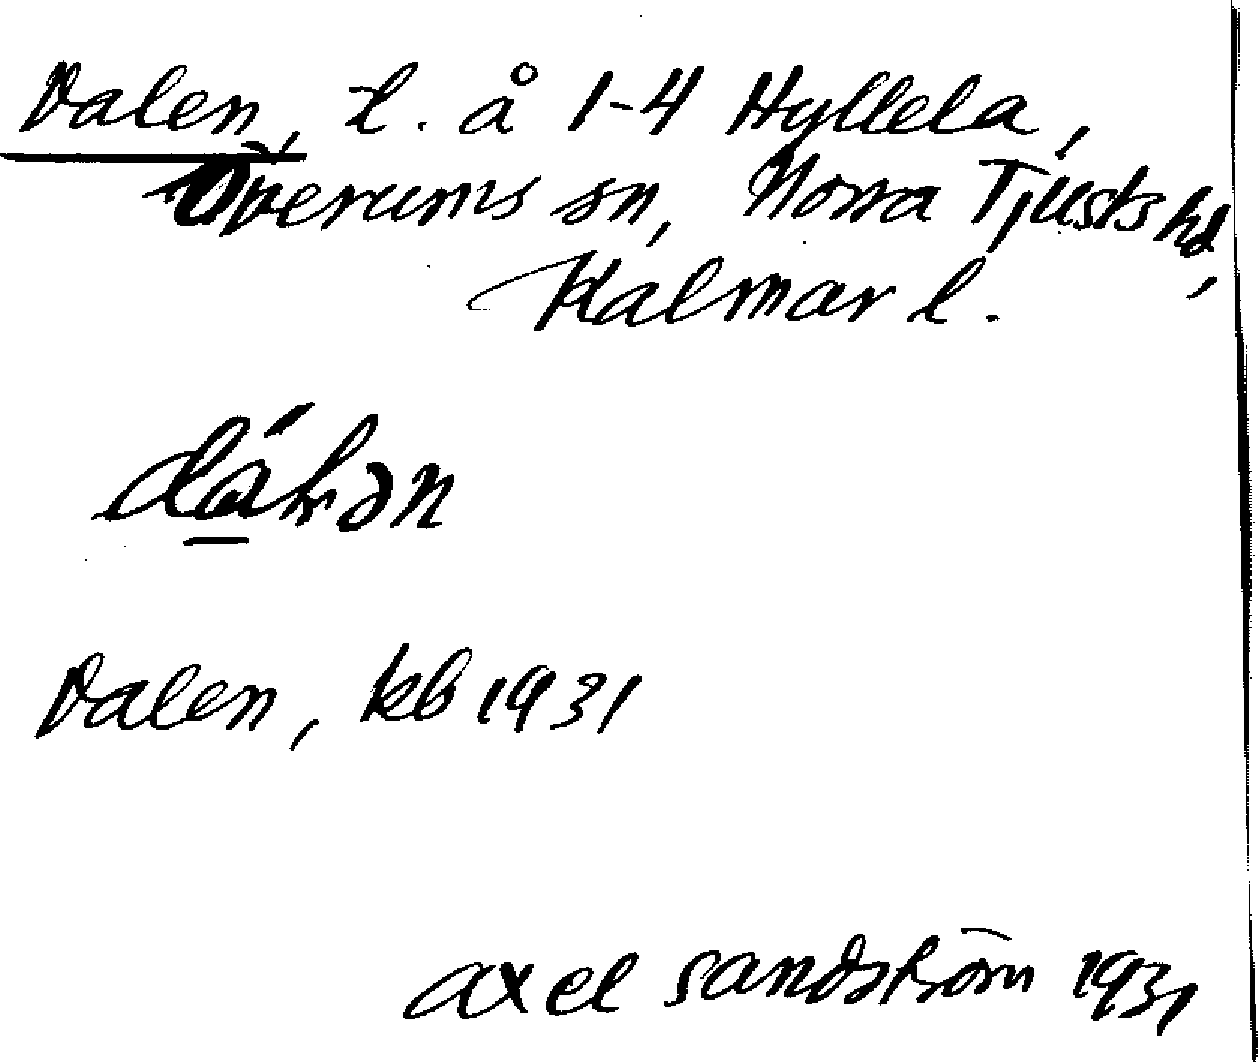 Dalen, l. å 1-4 Hyllela,
Överums sn, Norra Tjusts hd,
Kalmar l.
Dalen, kb 1931
axel sandström 1931